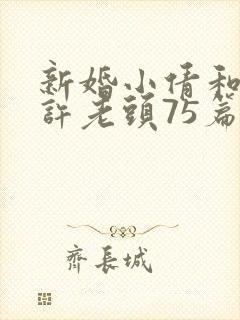 新婚小倩和
許老頭75篇
齊長城